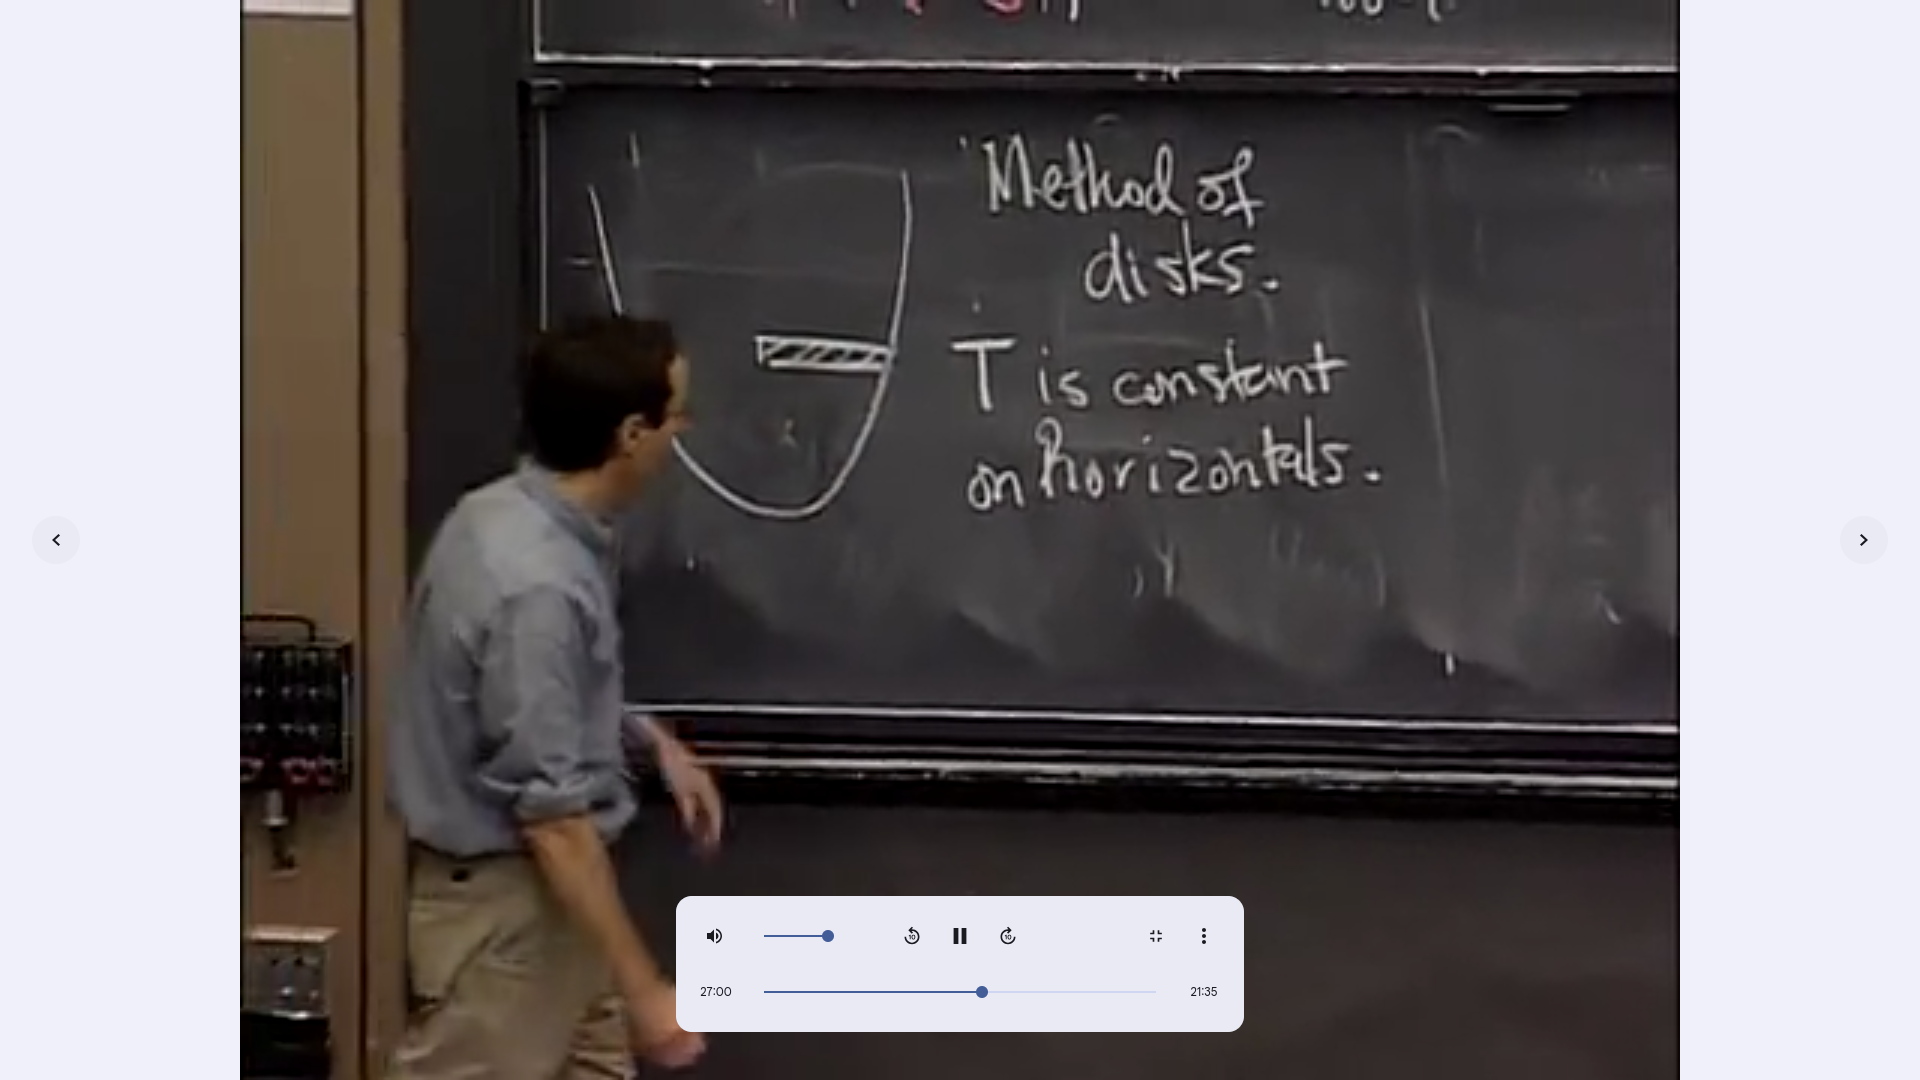 Method of
disks.
T is constant
on horizontals.
10
10
27:00
21:35